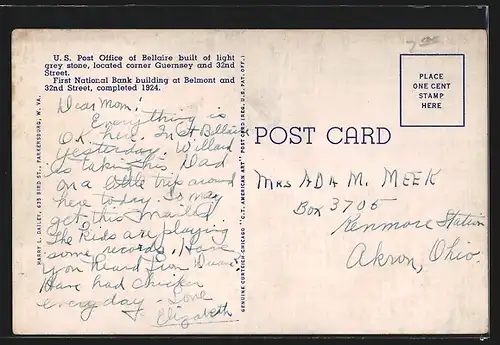 U. S. Post Office of Bellaire built of light
grey stone, located corner Guernsey and 32nd
Street.
First National Bank building at Belmont and
32nd Street, completed 1924.
Dear Mom:
Everything is
O.K. here. In at Bellaire
yesterday. Willard
is taking his Dad
on a little trip around
here today. So may
get this mailed.
The kids are playing
some records. Have
you heard from
Have had chicken
every day - Love
Elizabeth
HARRY L. DAILEY, 635 BIRD ST., PARKERSBURG, W. VA.
GENUINE CURTEICH-CHICAGO "C.T. AMERICAN ART" POST CARD (REG. U.S. PAT. OFF.)
POST CARD
PLACE
ONE CENT
STAMP
HERE
Mrs Ada M. Meek
Box 3705
Kenmore Station
Akron, Ohio.